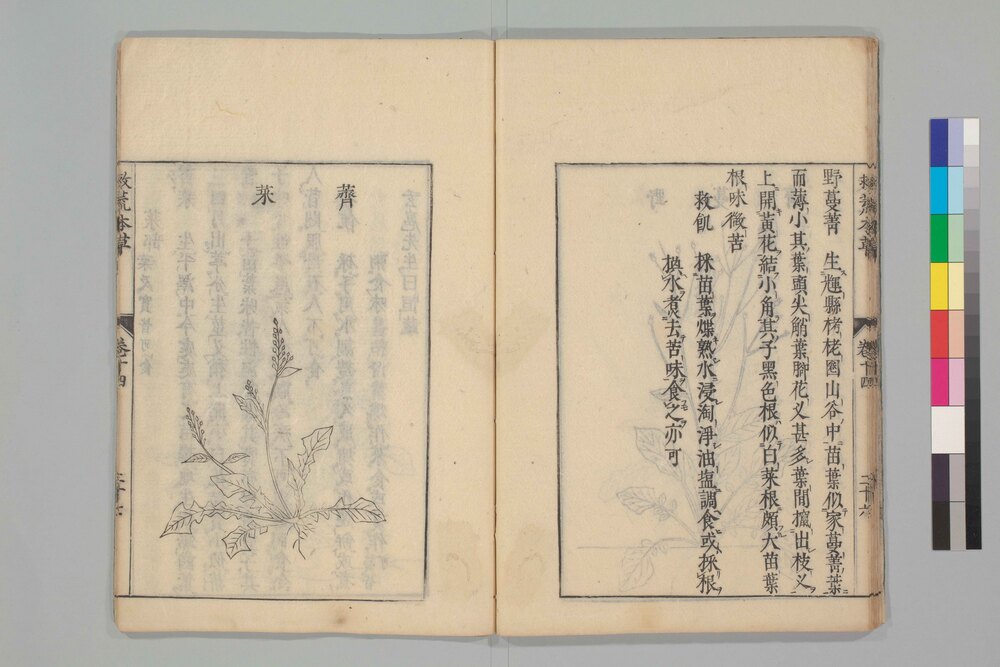 野蔓菁　生輝縣栲栳圈山谷中苗葉似家蔓菁葉
而薄小其葉頭尖艄葉脚花叉甚多葉間攛出枝叉
上開黃花結小角其子黑色根似白菜根頗大苗葉
根味微苦
救飢　採苗葉煠熟水浸淘淨油塩調食或採根
換水煮去苦味食之亦可
救荒本草
卷十四
薺
菜
救荒本草
卷十四